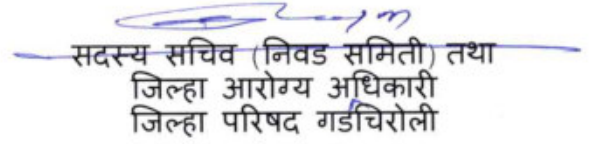 सदस्य सचिव (निवड समिती) तथा
जिल्हा आरोग्य अधिकारी
जिल्हा परिषद गडचिरोली